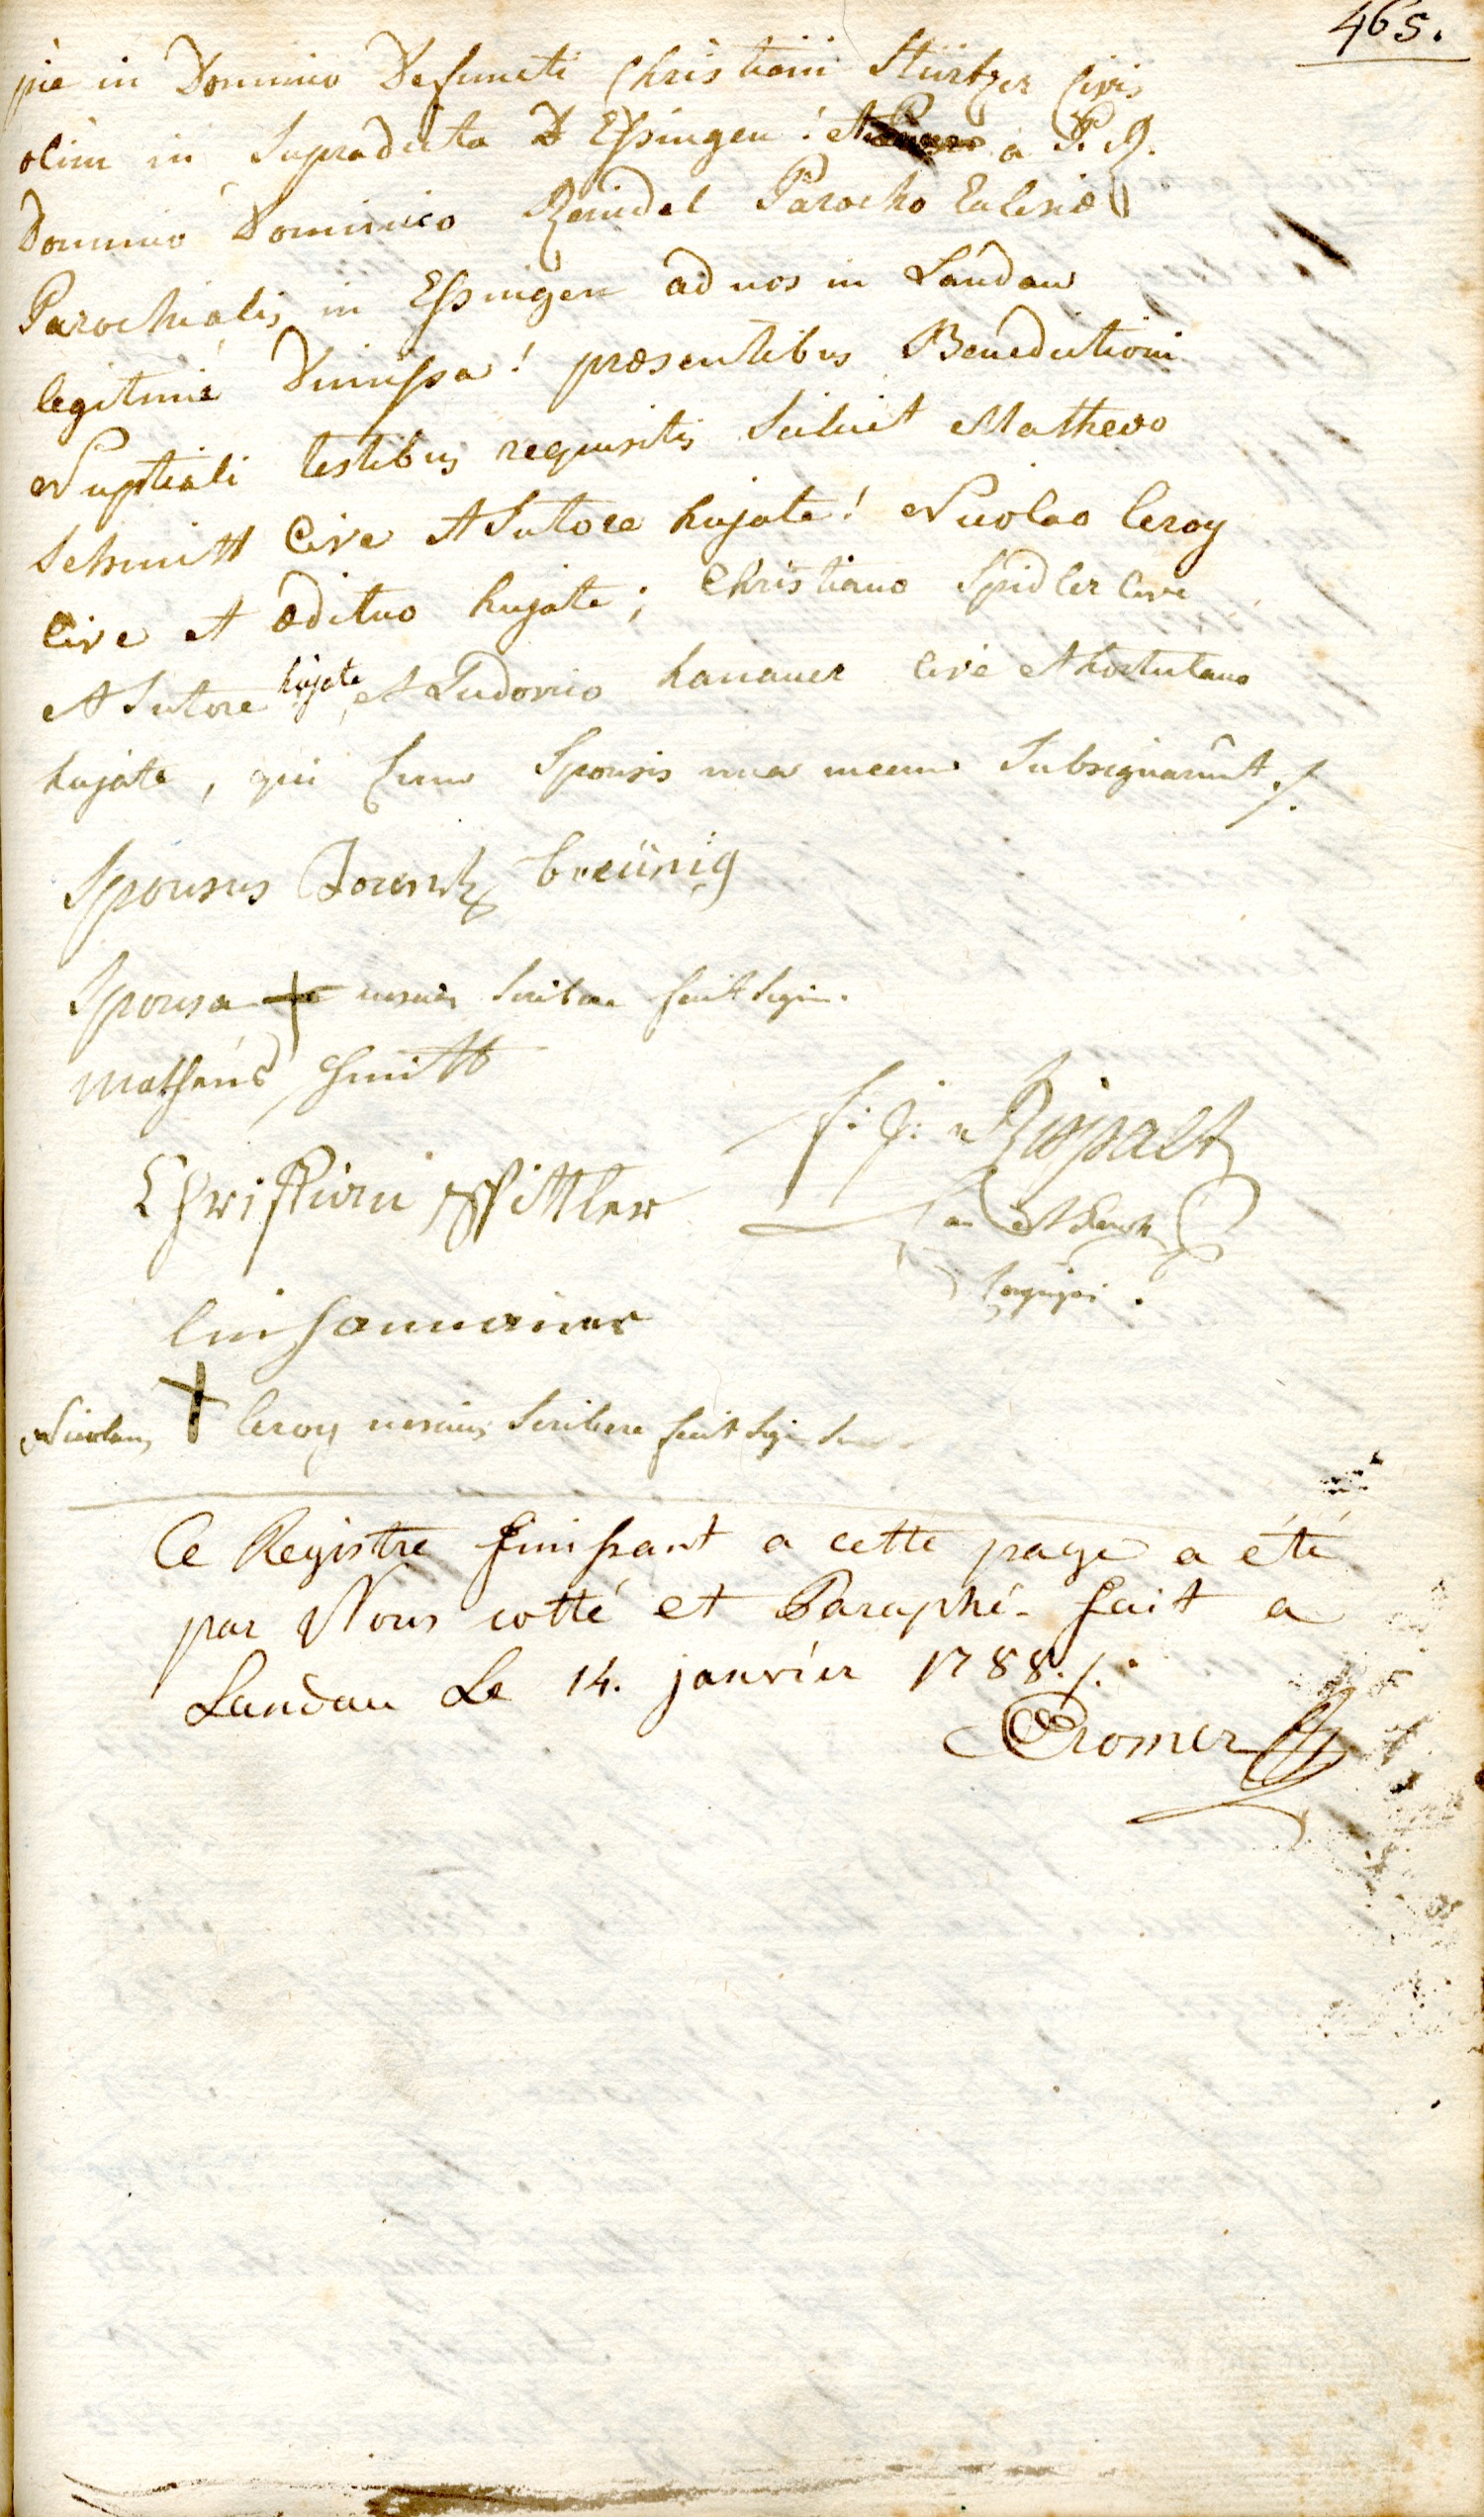 465.
pie in Domino Defuncti Christiani Stürtzer Civis
olim in Supradicta D Essingen! et a P. D.
Domino Dominico Reindel Parocho Eclesiæ
Parochialis in Essingen ad nos in Landau
legitimè Dimissa! præsentibus Benedictioni
Nuptiali testibus requisitis Scilicet Matheo
Schmitt Cive et Sutore hujate! Nicolao leroy
Cive et ædituo hujate; Christiano Spidler Cive
et Sutore hujate, et Ludovico hanauer Cive et hortulano
hujate, qui Cum Sponsis una mecum Subsignarunt ./.
Sponsus breünig
Sponsa + nescia Scribere fecit Sign.
Matheus Schmitt
f: j: Rippert
Christian Spittler
Can et Paroch
hannauer
Nicolaus + leroy nescius Scribere fecit Sign
Ce Registre finissant a cette page a été
par Nous cotté et Paraphé. fait a
Landau Le 14. janvier 1788./.
Cromer